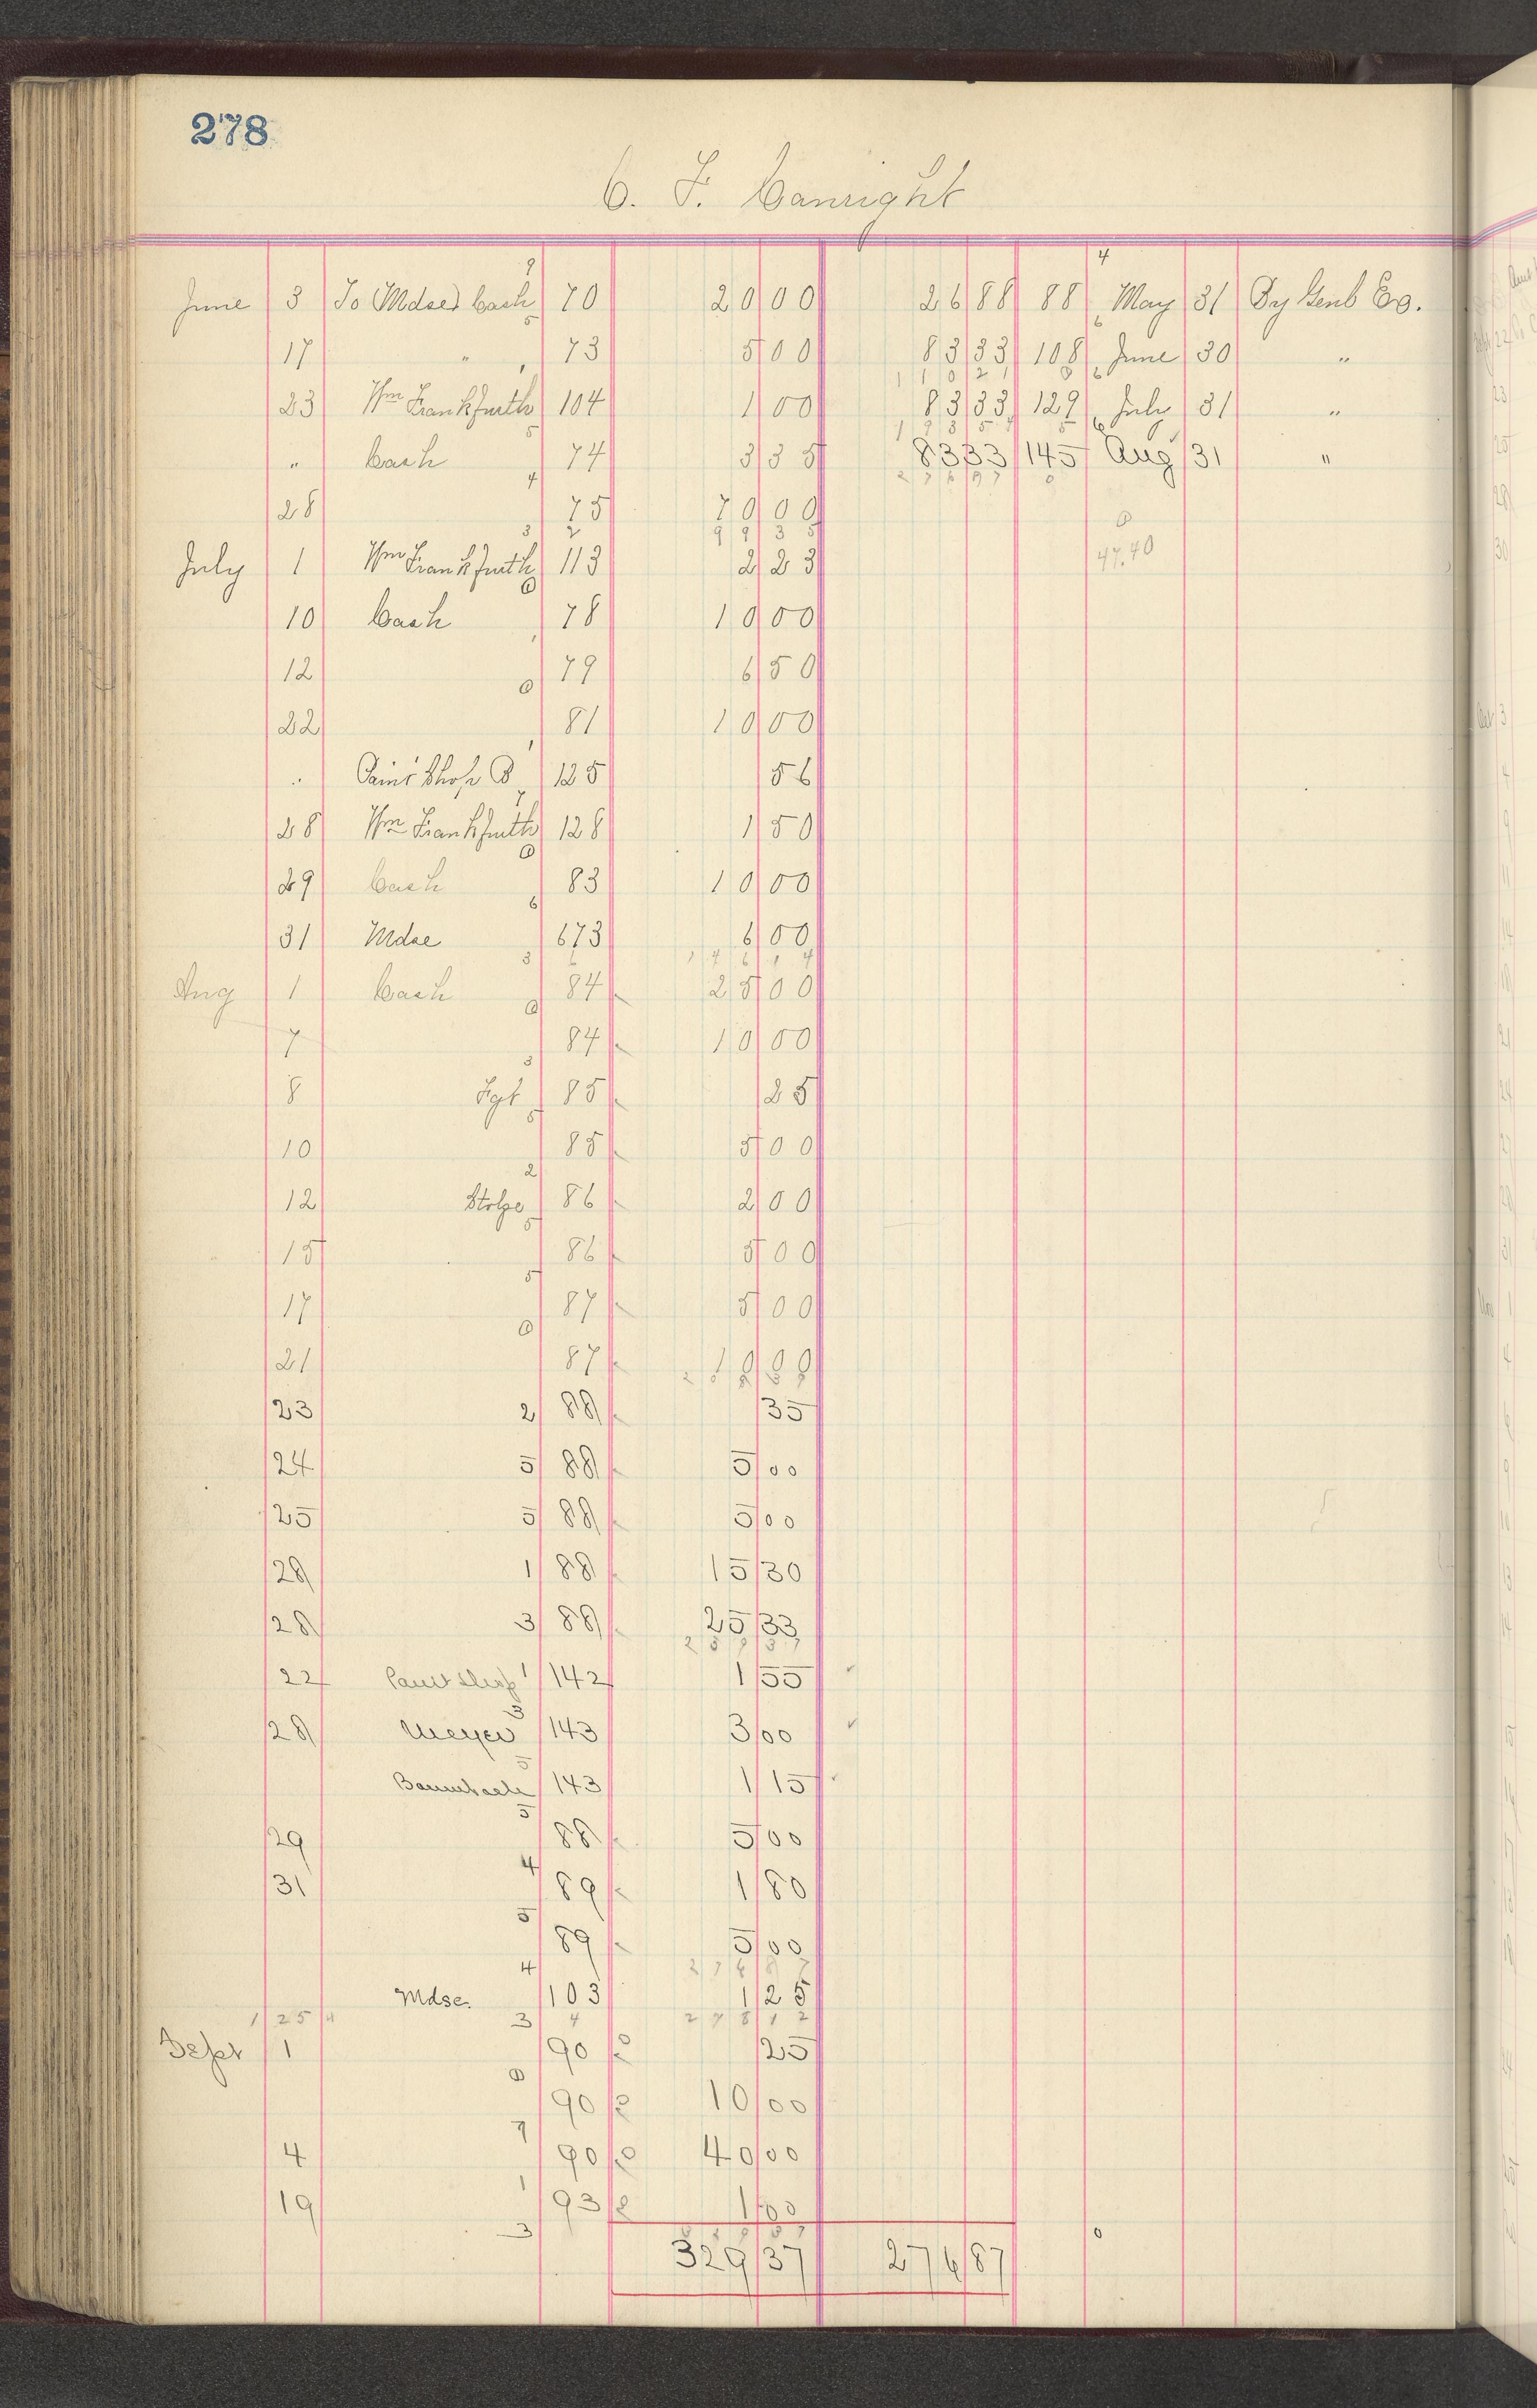 278
C. F. Canright
June 3 To Mdse & Cash 70 20 00 26 88 88 May 31 By Genl Ex.
17 " " 73 5 00 83 33 108 June 30 "
23 Wm Frankfurth 104 1 00 83 33 129 July 31 "
" Cash 74 3 35 83 33 145 Aug 31 "
28 75 70 00
99 35
47.40
July 1 Wm Frankfurth 113 2 23
10 Cash 78 10 00
12 79 6 50
22 81 10 00
" Paint Shop 125 56
28 Wm Frankfurth 128 1 50
29 Cash 83 10 00
31 Mdse 673 6 00
146 14
Aug 1 Cash 84 25 00
7 84 10 00
8 Fgt 85 25
10 85 5 00
12 Stolze 86 2 00
15 86 5 00
17 87 5 00
21 87 10 00
23 88 35
24 88 5 00
25 88 5 00
28 88 15 30
28 88 25 33
22 Paint Shop 142 1 55
28 Meyer 143 3 00
143 1 15
29 88 5 00
31 89 1 80
89 5 00
276 87
Mdse. 103 1 25
278 12
Sept 1 90 25
90 10 00
4 90 40 00
19 93 1 00
329 37 276 87